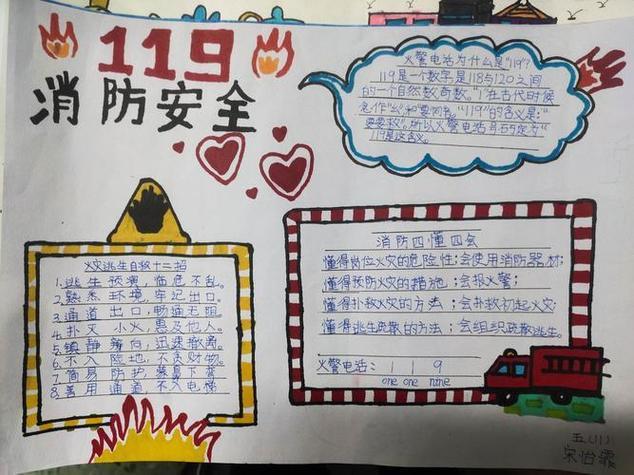 119
消防安全
火警电话为什么是"119"?
119是一个数字是118与120之间
的一个自然数奇数。"1"在古代时候
念作"幺"和"要"同音。"119"的含义是:"
要要救",所以火警电话
119是这含义。
火灾逃生自救十二招
1.逃生预演,临危不乱。
2.熟悉环境,牢记出口。
3.通道出口,畅通无阻。
4.扑灭小火,惠及他人。
5.镇静辨向,迅速撤离。
6.不入险地,不贪财物。
7.简易防护,蒙鼻下蹲
8.善用通道,不入电梯
消防四懂四会
懂得岗位火灾的危险性;会使用消防器材;
懂得预防火灾的措施;会报火警;
懂得扑救火灾的方法;会扑救初起火灾;
懂得逃生疏散的方法;会组织疏散逃生。
火警电话: 1 1 9
one one nine
五(1)
宋怡霖